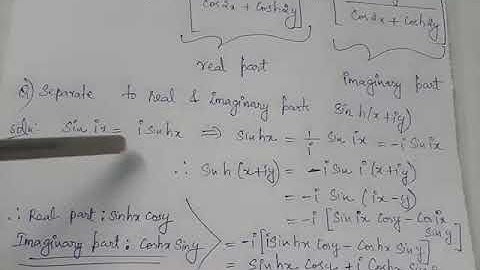 Cos2x + Cosh2y
Cos2x + Cosh2y
real part
imaginary part
Q) Separate to real & imaginary parts Sin h(x+iy)
Soln: Sin ix = i sinhx ⇒ sinhx = 1/i Sin ix = -i Sin ix
∴ Sin h (x+iy) = -i Sin i (x+iy)
= -i Sin (ix-y)
= -i [Sin ix Cosy - Cos ix Sin y]
∴ Real part : Sinhx Cosy
Imaginary part : Coshx Siny
= -i [i Sinhx Cosy - Coshx Sin y]
= Sinhx Cosy + i Coshx Sin